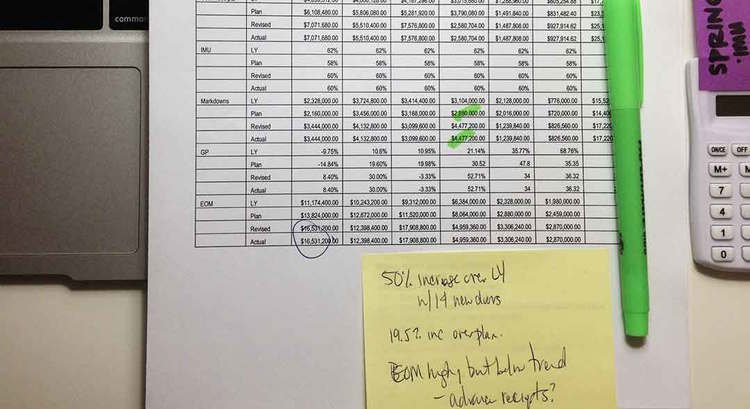 command
$6,108,480.00 $5,806,080.00 $5,281,920.00 $3,790,080.00 $1,491,840.00 $831,482.40
Revised $7,071,680.00 $5,510,400.00 $7,576,800.00 $2,580,704.00 $1,487,808.00 $927,914.62
Actual $7,071,680.00 $5,510,400.00 $7,576,800.00 $2,580,704.00 $1,487,808.00 $927,914.62
IMU LY 62% 62% 62% 62% 62% 62%
Plan 58% 58% 58% 58% 58% 58%
Revised 60% 60% 60% 60% 60% 60%
Actual 60% 60% 60% 60% 60% 60%
Markdowns LY $2,328,000.00 $3,724,800.00 $3,414,400.00 $3,104,000.00 $2,128,000.00 $776,000.00 $15,52
Plan $2,160,000.00 $3,456,000.00 $3,168,000.00 $2,880,000.00 $2,016,000.00 $720,000.00 $14,40
Revised $3,444,000.00 $4,132,800.00 $3,099,600.00 $4,477,200.00 $1,239,840.00 $826,560.00 $17,22
Actual $3,444,000.00 $4,132,800.00 $3,099,600.00 $4,477,200.00 $1,239,840.00 $826,560.00 $17,220
GP LY -9.75% 10.6% 10.95% 21.14% 35.77% 68.76%
Plan -14.84% 19.60% 19.98% 30.52 47.8 35.35
Revised 8.40% 30.00% -3.33% 52.71% 34 36.32
Actual 8.40% 30.00% -3.33% 52.71% 34 36.32
EOM LY $11,174,400.00 $10,243,200.00 $9,312,000.00 $6,384,000.00 $2,328,000.00 $1,980,000.00
Plan $13,824,000.00 $12,672,000.00 $11,520,000.00 $8,064,000.00 $2,880,000.00 $2,459,000.00
Revised $16,531,200.00 $12,398,400.00 $17,908,800.00 $4,959,360.00 $3,306,240.00 $2,870,000.00
Actual $16,531,200.00 $12,398,400.00 $17,908,800.00 $4,959,360.00 $3,306,240.00 $2,870,000.00
50% increase over LY
w/14 new doors
19.5% inc over plan.
EOM highly but below trend
- advance receipts?
SPRING
IMU
ON/CE OFF
M+
7
4
1
0